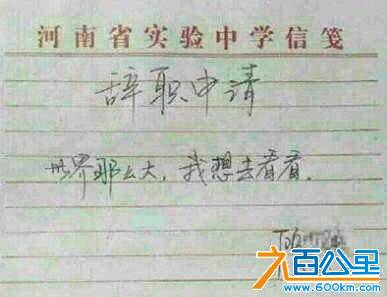 河南省实验中学信笺
辞职申请
世界那么大，我想去看看。
六百公里
www.600km.com